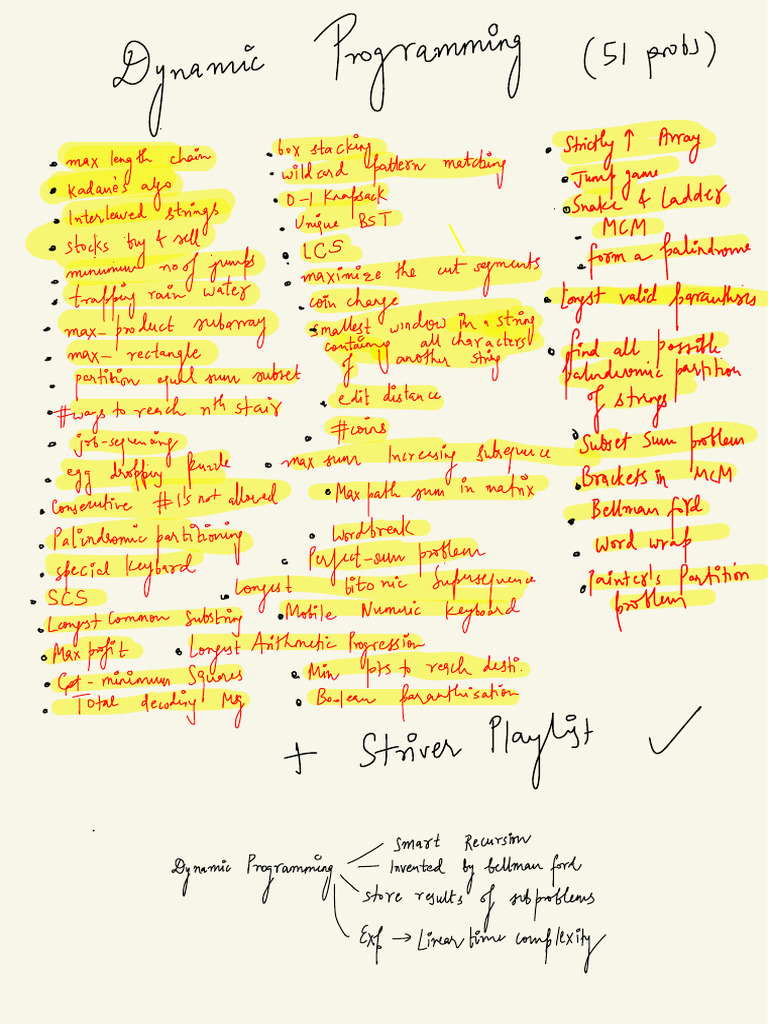 Dynamic Programming (51 probs)
• max length chain
• Kadane's algo
• Interleaved strings
• stocks buy & sell
• minimum no of jumps
• trapping rain water
• max_product subarray
• max_ rectangle
• partition equll sum subset
• #ways to reach nth stair
• job-sequencing
• egg dropping puzzle
• Consecutive #1's not allowed
• Palindromic partitioning
• special keyboard
• SCS
• Longst Common Substring
• Max profit
• Get-minimum Squares
• Total decoding Msg
• box stacking
• wildcard pattern matching
• 0-1 Knapsack
• Unique BST
• LCS
• maximize the cut segments
• coin change
• smallest window in a string
containing all characters
of another string
• edit distance
• #coins
• max sum Increasing subsequence
• Max path sum in matrix
• Wordbreak
• Perfect-sum problem
• Longest bitonic Supersequence
• Mobile Numeric Keyboard
• Longest Arithmetic Progression
• Min pts to reach desti.
• Boolean paranthisation
• Strictly ↑ Array
• Jump game
• Snake & Ladder
• MCM
• form a palindrome
• Longst valid paranthises
• find all possible
palindromic partition
of strings
• Subset Sum problem
• Brackets in MCM
• Bellman ford
• Word wrap
• Painter's Partition
problem
+ Striver Playlist ✓
Dynamic Programming
— Smart Recursion
— Invented by bellman ford
— store results of subproblems
— Exp → Linear time complexity